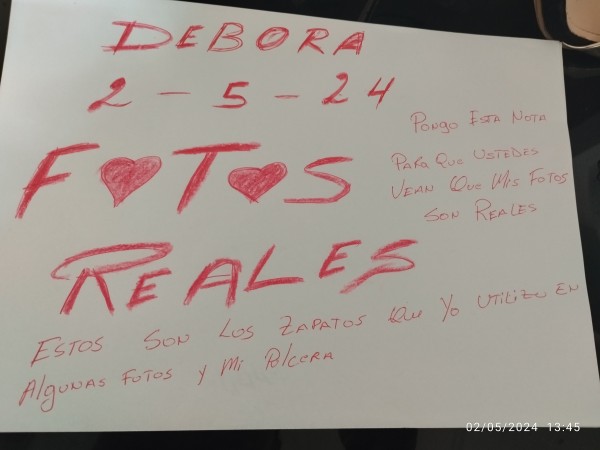 DEBORA
2 - 5 - 24
FOTOS
REALES
PONGO ESTA NOTA
PARA QUE USTEDES
VEAN QUE MIS FOTOS
SON REALES
ESTOS SON LOS ZAPATOS QUE YO UTILIZO EN
ALGUNAS FOTOS Y MI PULCERA
02/05/2024 13:45